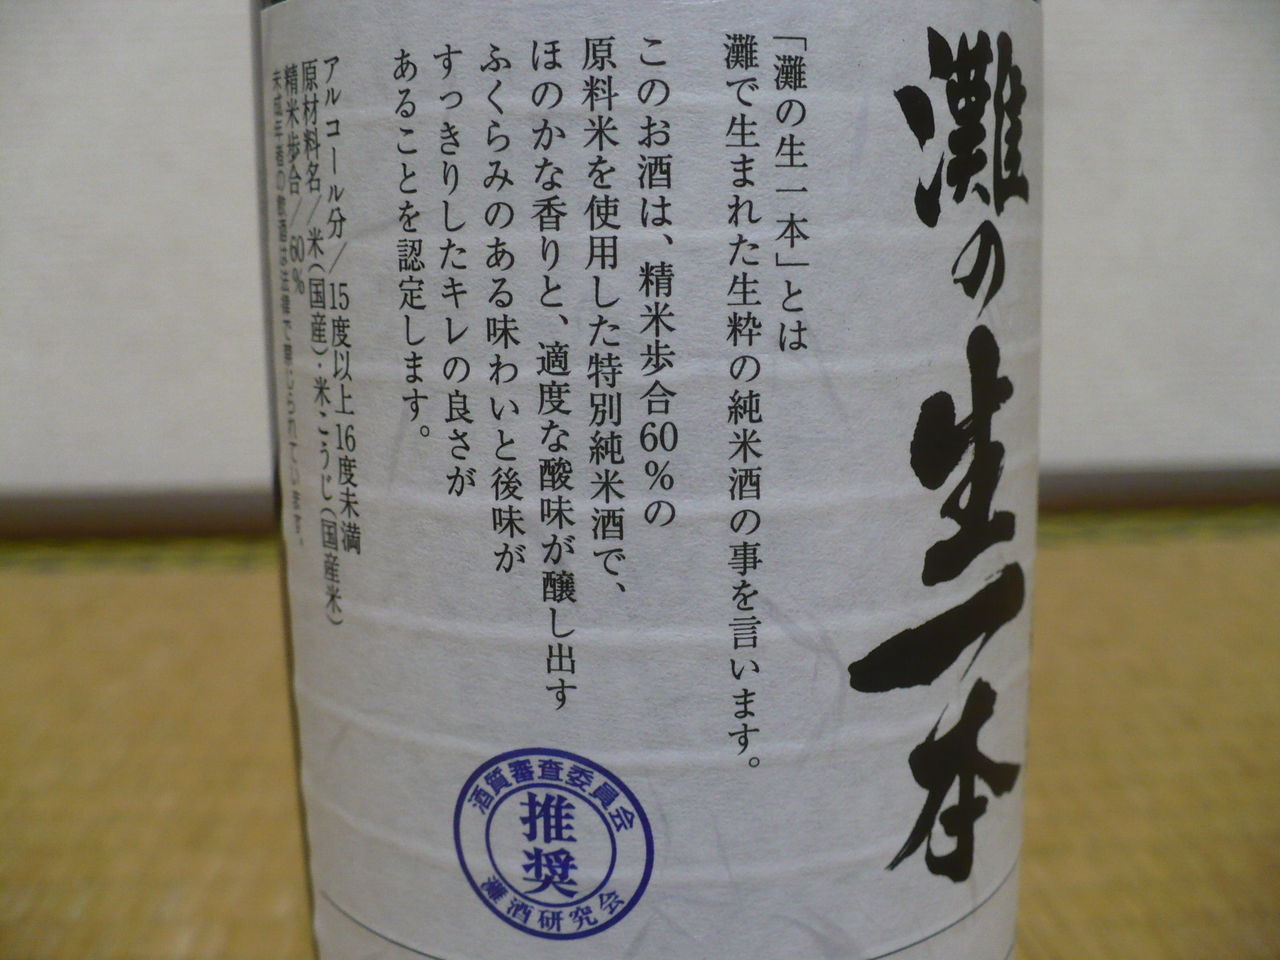 灘の生一本
「灘の生一本」とは
灘で生まれた生粋の純米酒の事を言います。
このお酒は、精米歩合60%の
原料米を使用した特別純米酒で、
ほのかな香りと、適度な酸味が醸し出す
ふくらみのある味わいと後味が
すっきりしたキレの良さが
あることを認定します。
アルコール分/15度以上16度未満
原材料名/米(国産)・米こうじ(国産米)
精米歩合/60%
未成年者の飲酒は法律で禁じられています。
酒質審査委員会
推奨
灘酒研究会